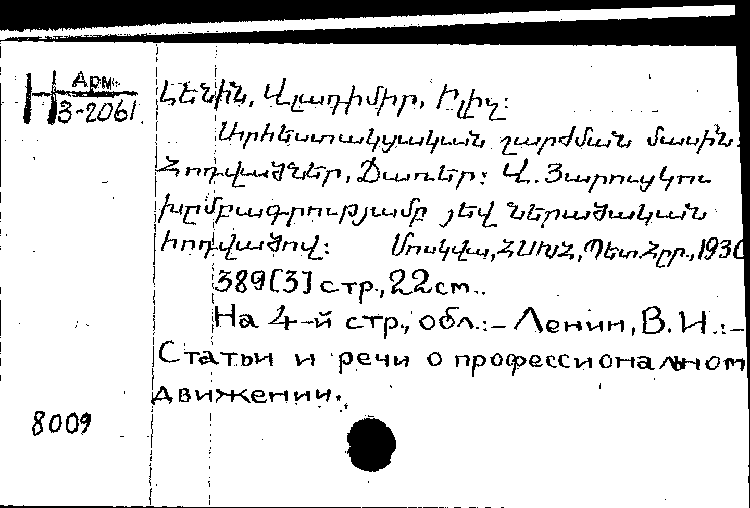 Арм.
H 3-2061
ԼԵՆԻՆ, Վլադիմիր, Իլիչ:
Արհեստակցական շարժման մասին:
Հոդվածներ, Ճառեր: Վ. Յարոցկու
խըմբագրությամբ յեվ ներածական
հոդվածով: Մոսկվա, ՀՍԽՀ, Պետ.Հրր., 1930
389[3] стр., 22 см..
На 4-й стр., обл.:- Ленин, В. И.:-
Статьи и речи о профессиональном
движении.
8009